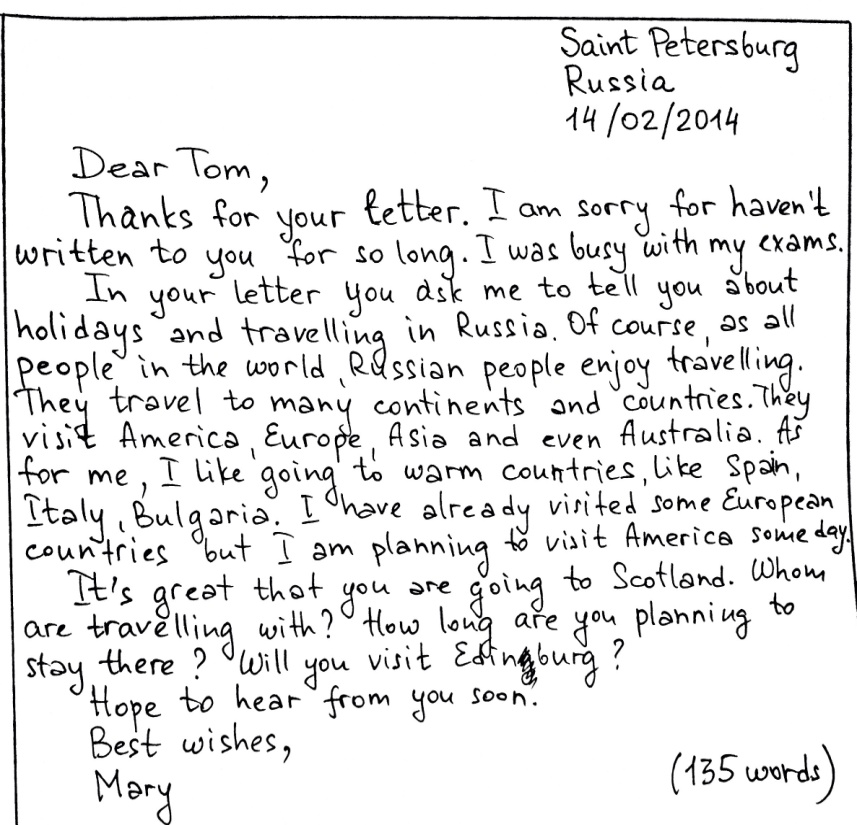 Saint Petersburg
Russia
14/02/2014
Dear Tom,
Thanks for your letter. I am sorry for haven't
written to you for so long. I was busy with my exams.
In your letter you ask me to tell you about
holidays and travelling in Russia. Of course, as all
people in the world, Russian people enjoy travelling.
They travel to many continents and countries. They
visit America, Europe, Asia and even Australia. As
for me, I like going to warm countries, like Spain,
Italy, Bulgaria. I have already visited some European
countries but I am planning to visit America some day.
It's great that you are going to Scotland. Whom
are travelling with? How long are you planning to
stay there? Will you visit Edingburg?
Hope to hear from you soon.
Best wishes,
Mary
(135 words)